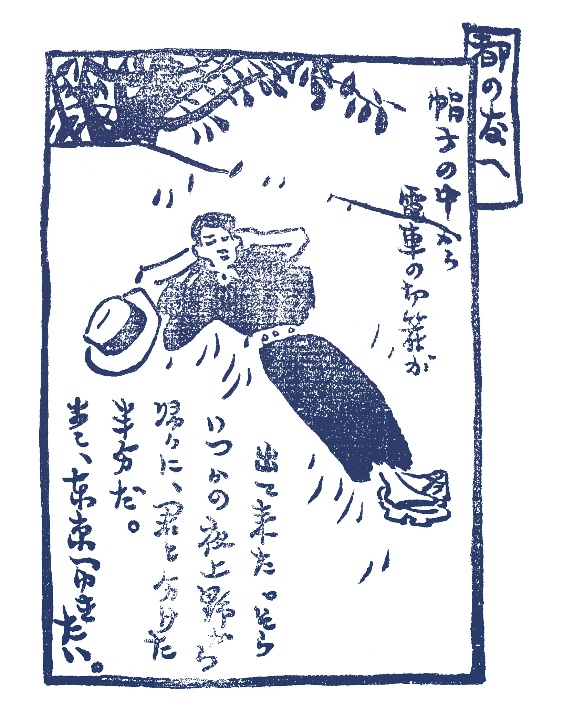 都の友へ
帽子の中から
電車の切符が
出て来た。そら
いつかの夜上野から
帰りに、君と分けた
半分だ。
東京へ行きたい。